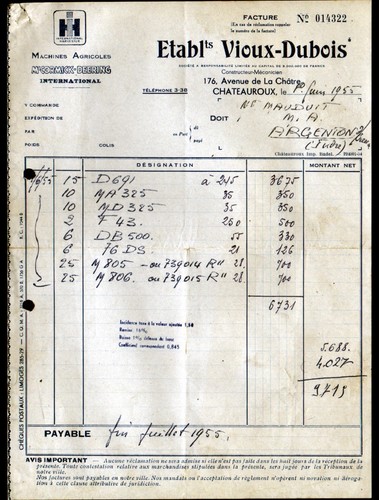 FACTURE
(En cas de réclamation rappeler
le numéro de la facture)
No 014322
INTERNATIONAL
HARVESTER
MACHINES AGRICOLES
McCORMICK-DEERING
INTERNATIONAL
Establts Vioux-Dubois
SOCIÉTÉ A RESPONSABILITÉ LIMITÉE AU CAPITAL DE FRANCS
Constructeur-Mécanicien
176, Avenue de La Châtre
TÉLÉPHONE 3-38
CHATEAUROUX, le 1955
V/COMMANDE
Mr MAUDUIT
EXPÉDITION DE
DOIT
M. A.
PAR
en Port
ARGENTON s/Creuse
POIDS
COLIS
(Indre)
Châteauroux Imp.
DÉSIGNATION
MONTANT NET
15 D691 à 245 3675
10 MA 325 35 350
10 MD 325 35 350
2 F 43. 250 500
6 DB 500. 55 330
6 76 DS. 21 126
25 M 805 - ou 739014 R" 28. 700
25 M 806. ou 739015 R" 28. 700
6731
Incidence taxe à la valeur ajoutée
Coefficient correspondant 0,845
5.688.
4.027
9715
PAYABLE fin juillet 1955.
CHÈQUES POSTAUX : LIMOGES
AVIS IMPORTANT — Aucune réclamation ne sera admise si elle n'est pas faite dans les huit jours de la réception de la
présente. Toute contestation relative aux marchandises stipulées dans la présente, sera jugée par les Tribunaux de
notre ville.
Nos factures sont payables en notre ville. Nos mandats ou l'acceptation de règlement n'opèrent ni novation ni déroga-
tion à cette clause attributive de juridiction.